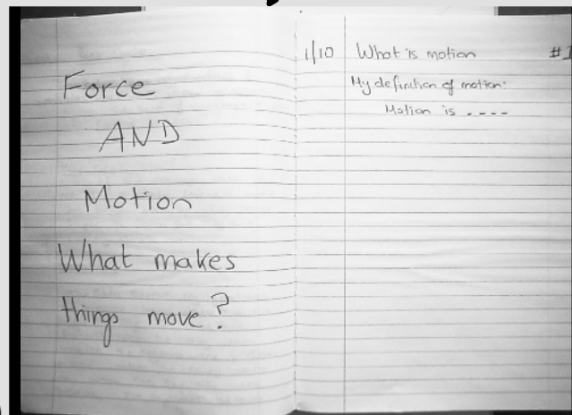 Force
AND
Motion
What makes
things move?
1/10 What is motion #1
My definition of motion:
Motion is ----